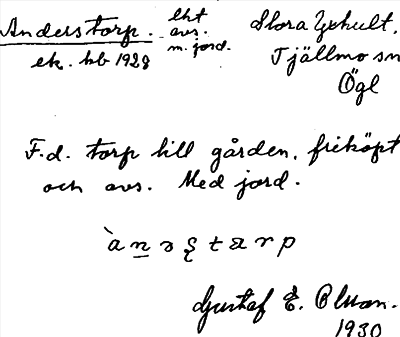 Anderstorp. lht avs. m. jord. Stora
ek. hb 1928 Tjällmo sn
Ögl
F.d. torp till gården, friköpt
och avs. Med jord.
Gustaf E.
1930